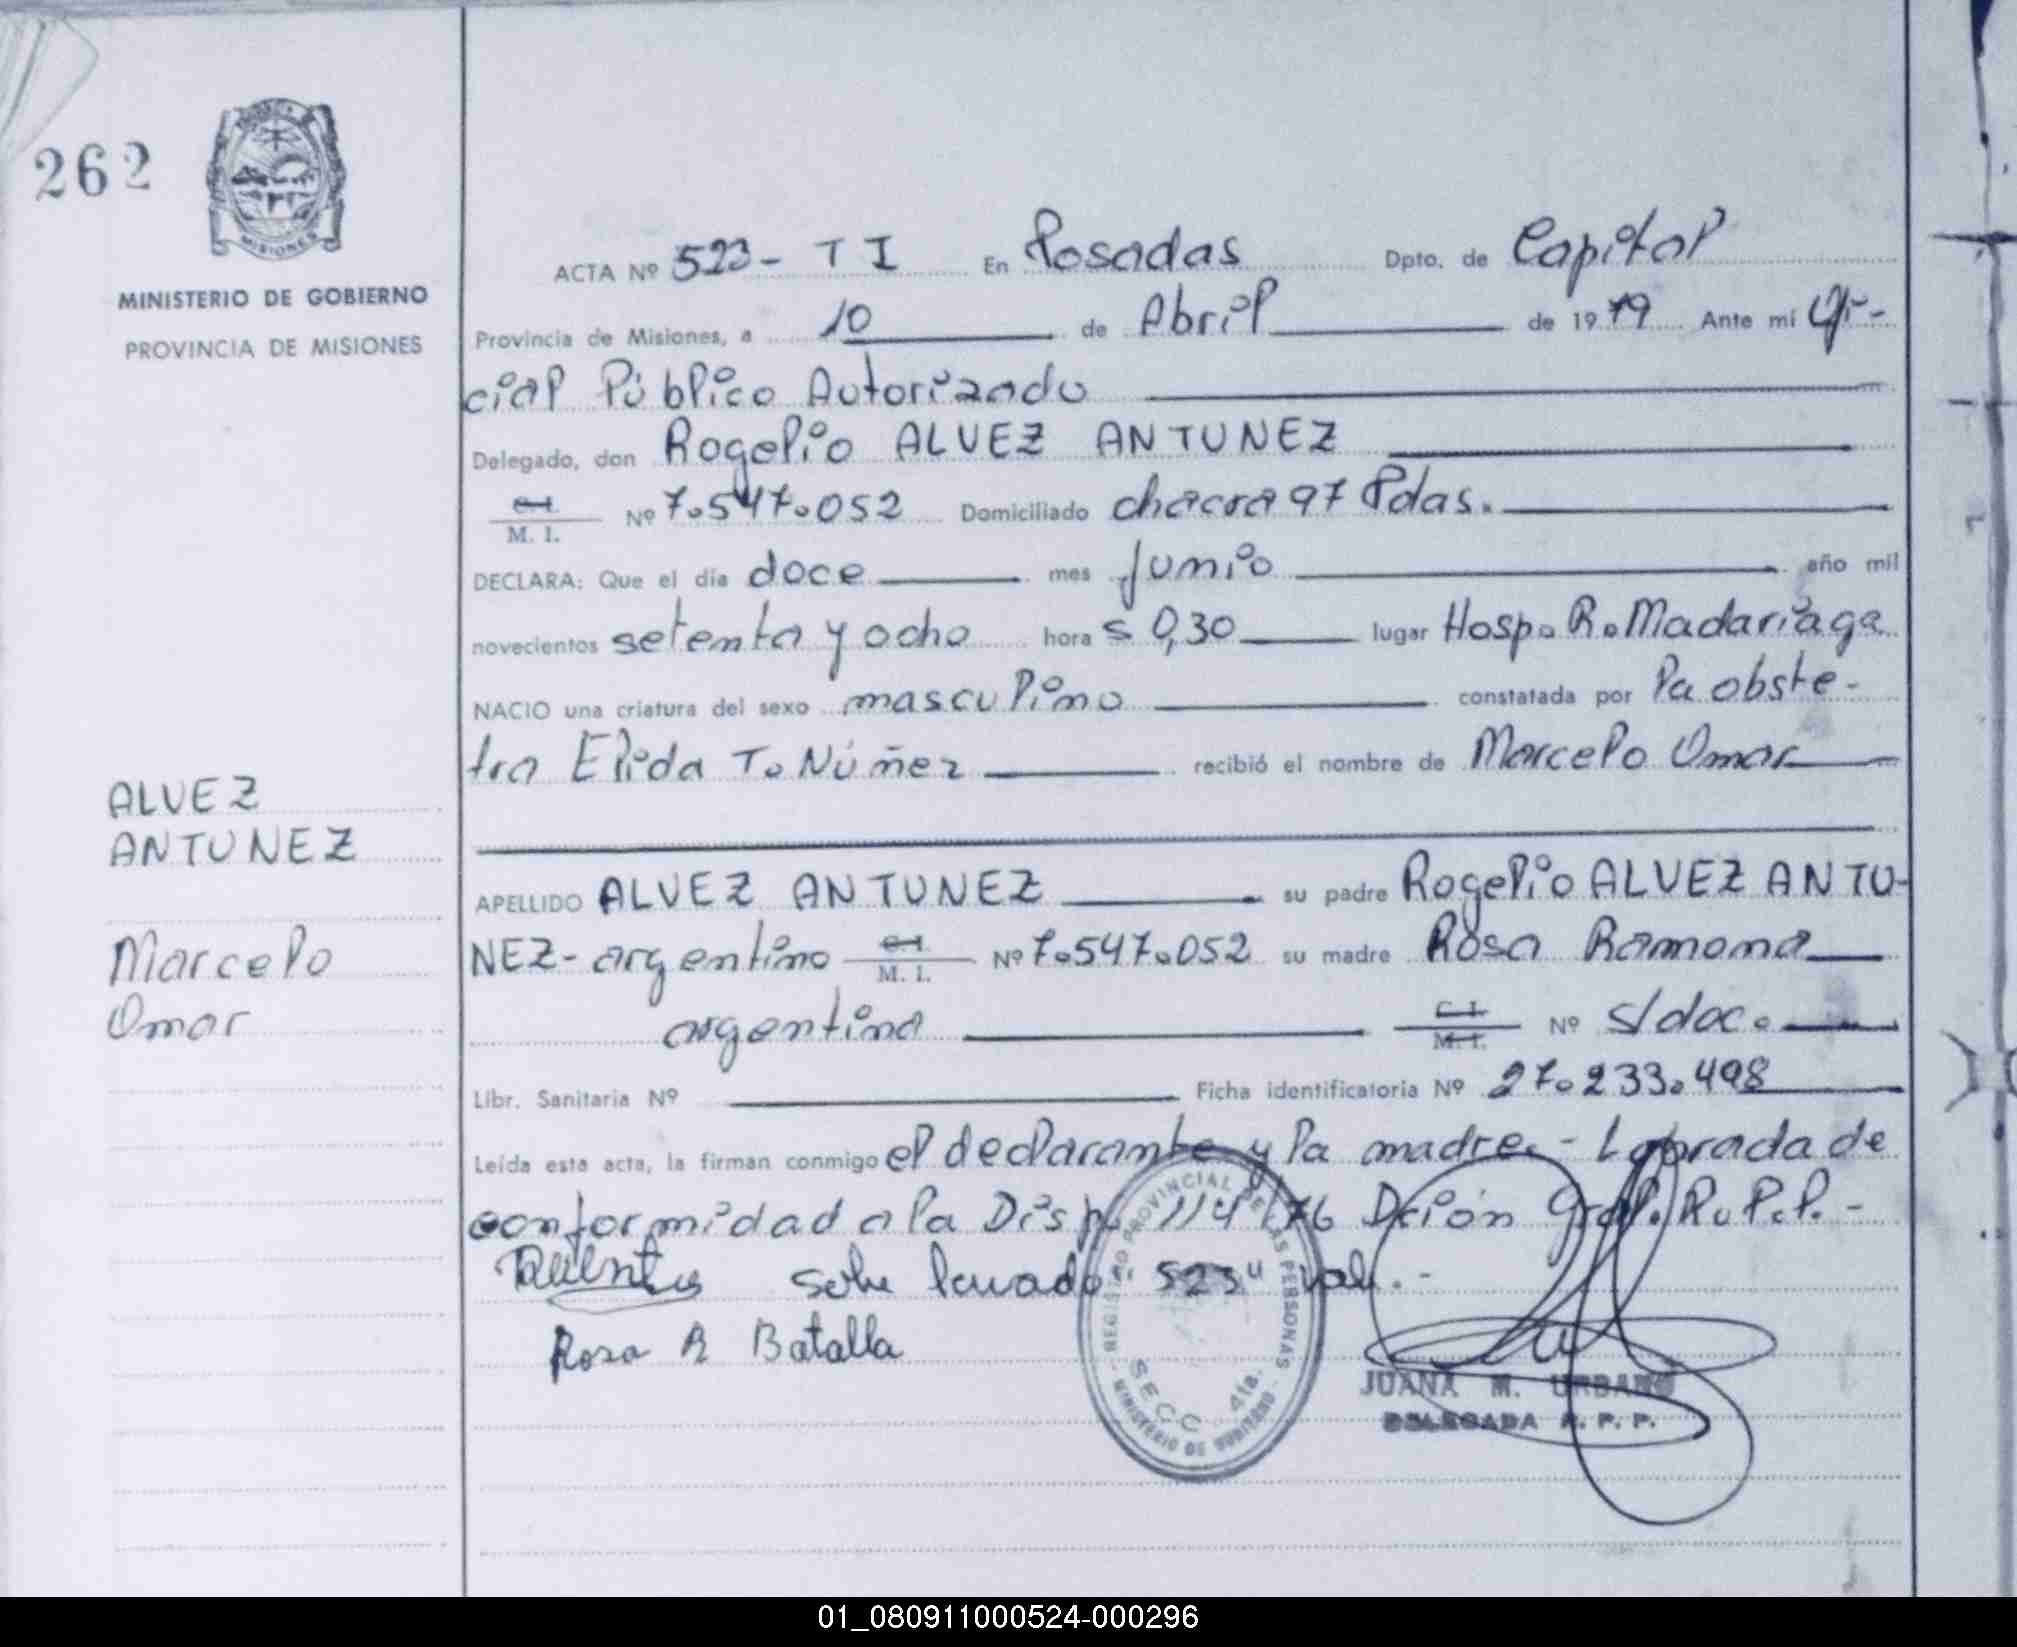 262
MISIONES
MINISTERIO DE GOBIERNO
PROVINCIA DE MISIONES
ALVEZ
ANTUNEZ
Marcelo
Omar
ACTA Nº 523 - T I En Posadas Dpto. de Capital
Provincia de Misiones, a 10 de Abril de 1979 Ante mí Ofi-
cial Público Autorizado
Delegado, don Rogelio ALVEZ ANTUNEZ
C.I.
M. I. Nº 7.547.052 Domiciliado chacra 97 Pdas.
DECLARA: Que el día doce mes Junio año mil
novecientos setenta y ocho hora s 0,30 lugar Hosp. R. Madariaga
NACIO una criatura del sexo masculino constatada por la obste-
tra Elida T. Núñez recibió el nombre de Marcelo Omar
APELLIDO ALVEZ ANTUNEZ su padre Rogelio ALVEZ ANTU-
NEZ - argentino C.I. M. I. Nº 7.547.052 su madre Rosa Ramona
argentina C.I. M. I. Nº s/doc.
Libr. Sanitaria Nº Ficha identificatoria Nº 27.233.498
Leída esta acta, la firman conmigo el declarante y la madre. - Labrada de
conformidad a la Disp. 114/76 Dción Gral. R.P.P. -
sobre lavado "523" vale. -
Rosa R Batalla
REGISTRO PROVINCIAL DE LAS PERSONAS
SECC. 4ta.
MINISTERIO DE GOBIERNO
JUANA M. URBANO
DELEGADA R. P. P.
01_080911000524-000296